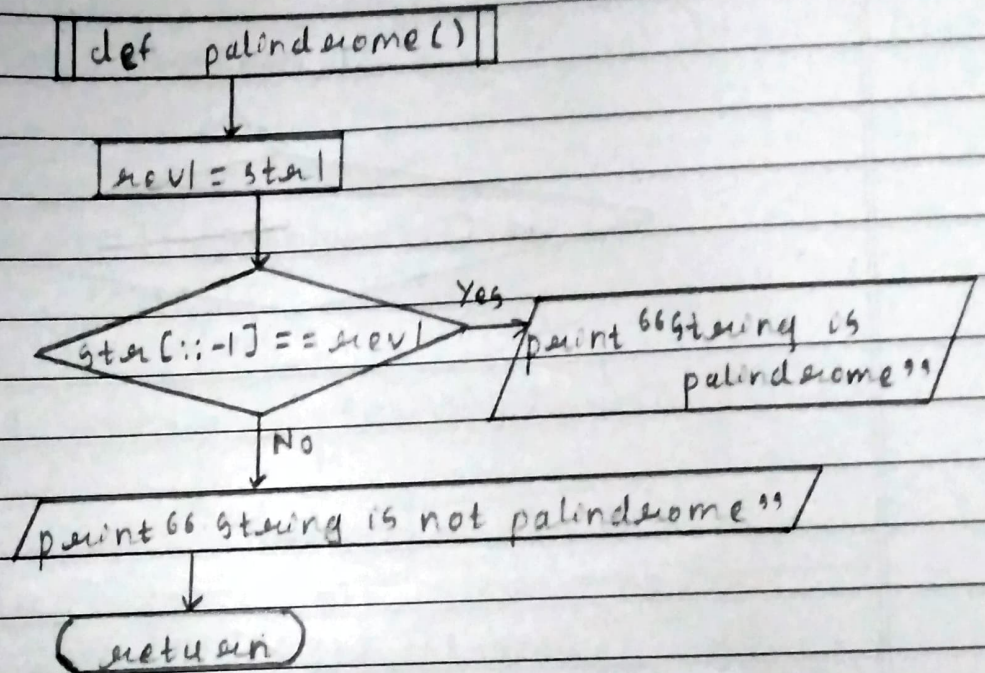 def palindrome()
rev1 = str1
str[::-1] == rev1
Yes
print "String is
palindrome"
No
print "String is not palindrome"
return